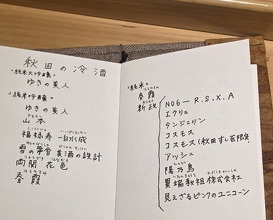 秋田の冷酒
・純米大吟醸・
ゆきの美人
・純米吟醸・
ゆきの美人
山本
福禄寿 一白水成
雪の茅舎 美酒の設計
両関 花邑
春霞
・純米・
春霞
新政
NO6-R.S.X.A
エクリュ
タンジェリン
コスモス
コスモス(秋田すし匠限定
アッシュ
陽乃鳥
見えざるピンクのユニコーン